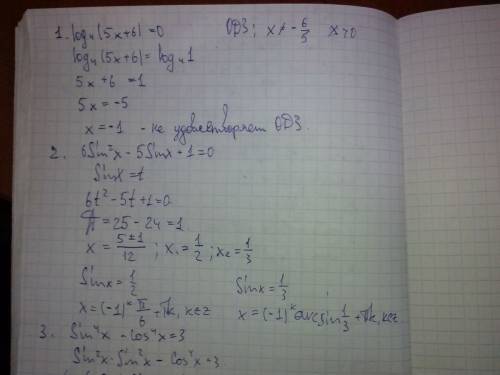 1. log₄(5x+6)=0 ОДЗ; x≠-6/5 x>0
log₄(5x+6)=log₄1
5x+6=1
5x=-5
x=-1 - не удовлетворяет ОДЗ.
2. 6Sin²x-5Sinx+1=0
Sinx=t
6t²-5t+1=0
Д=25-24=1
x=(5±1)/12; x₁=1/2; x₂=1/3
Sinx=1/2 Sinx=1/3
x=(-1)ᵏ π/6+πk, k∈z x=(-1)ᵏ arcsin 1/3+πk, k∈z
3. Sin⁴x-cos⁴x=3
Sin²x·Sin²x-cos⁴x=3